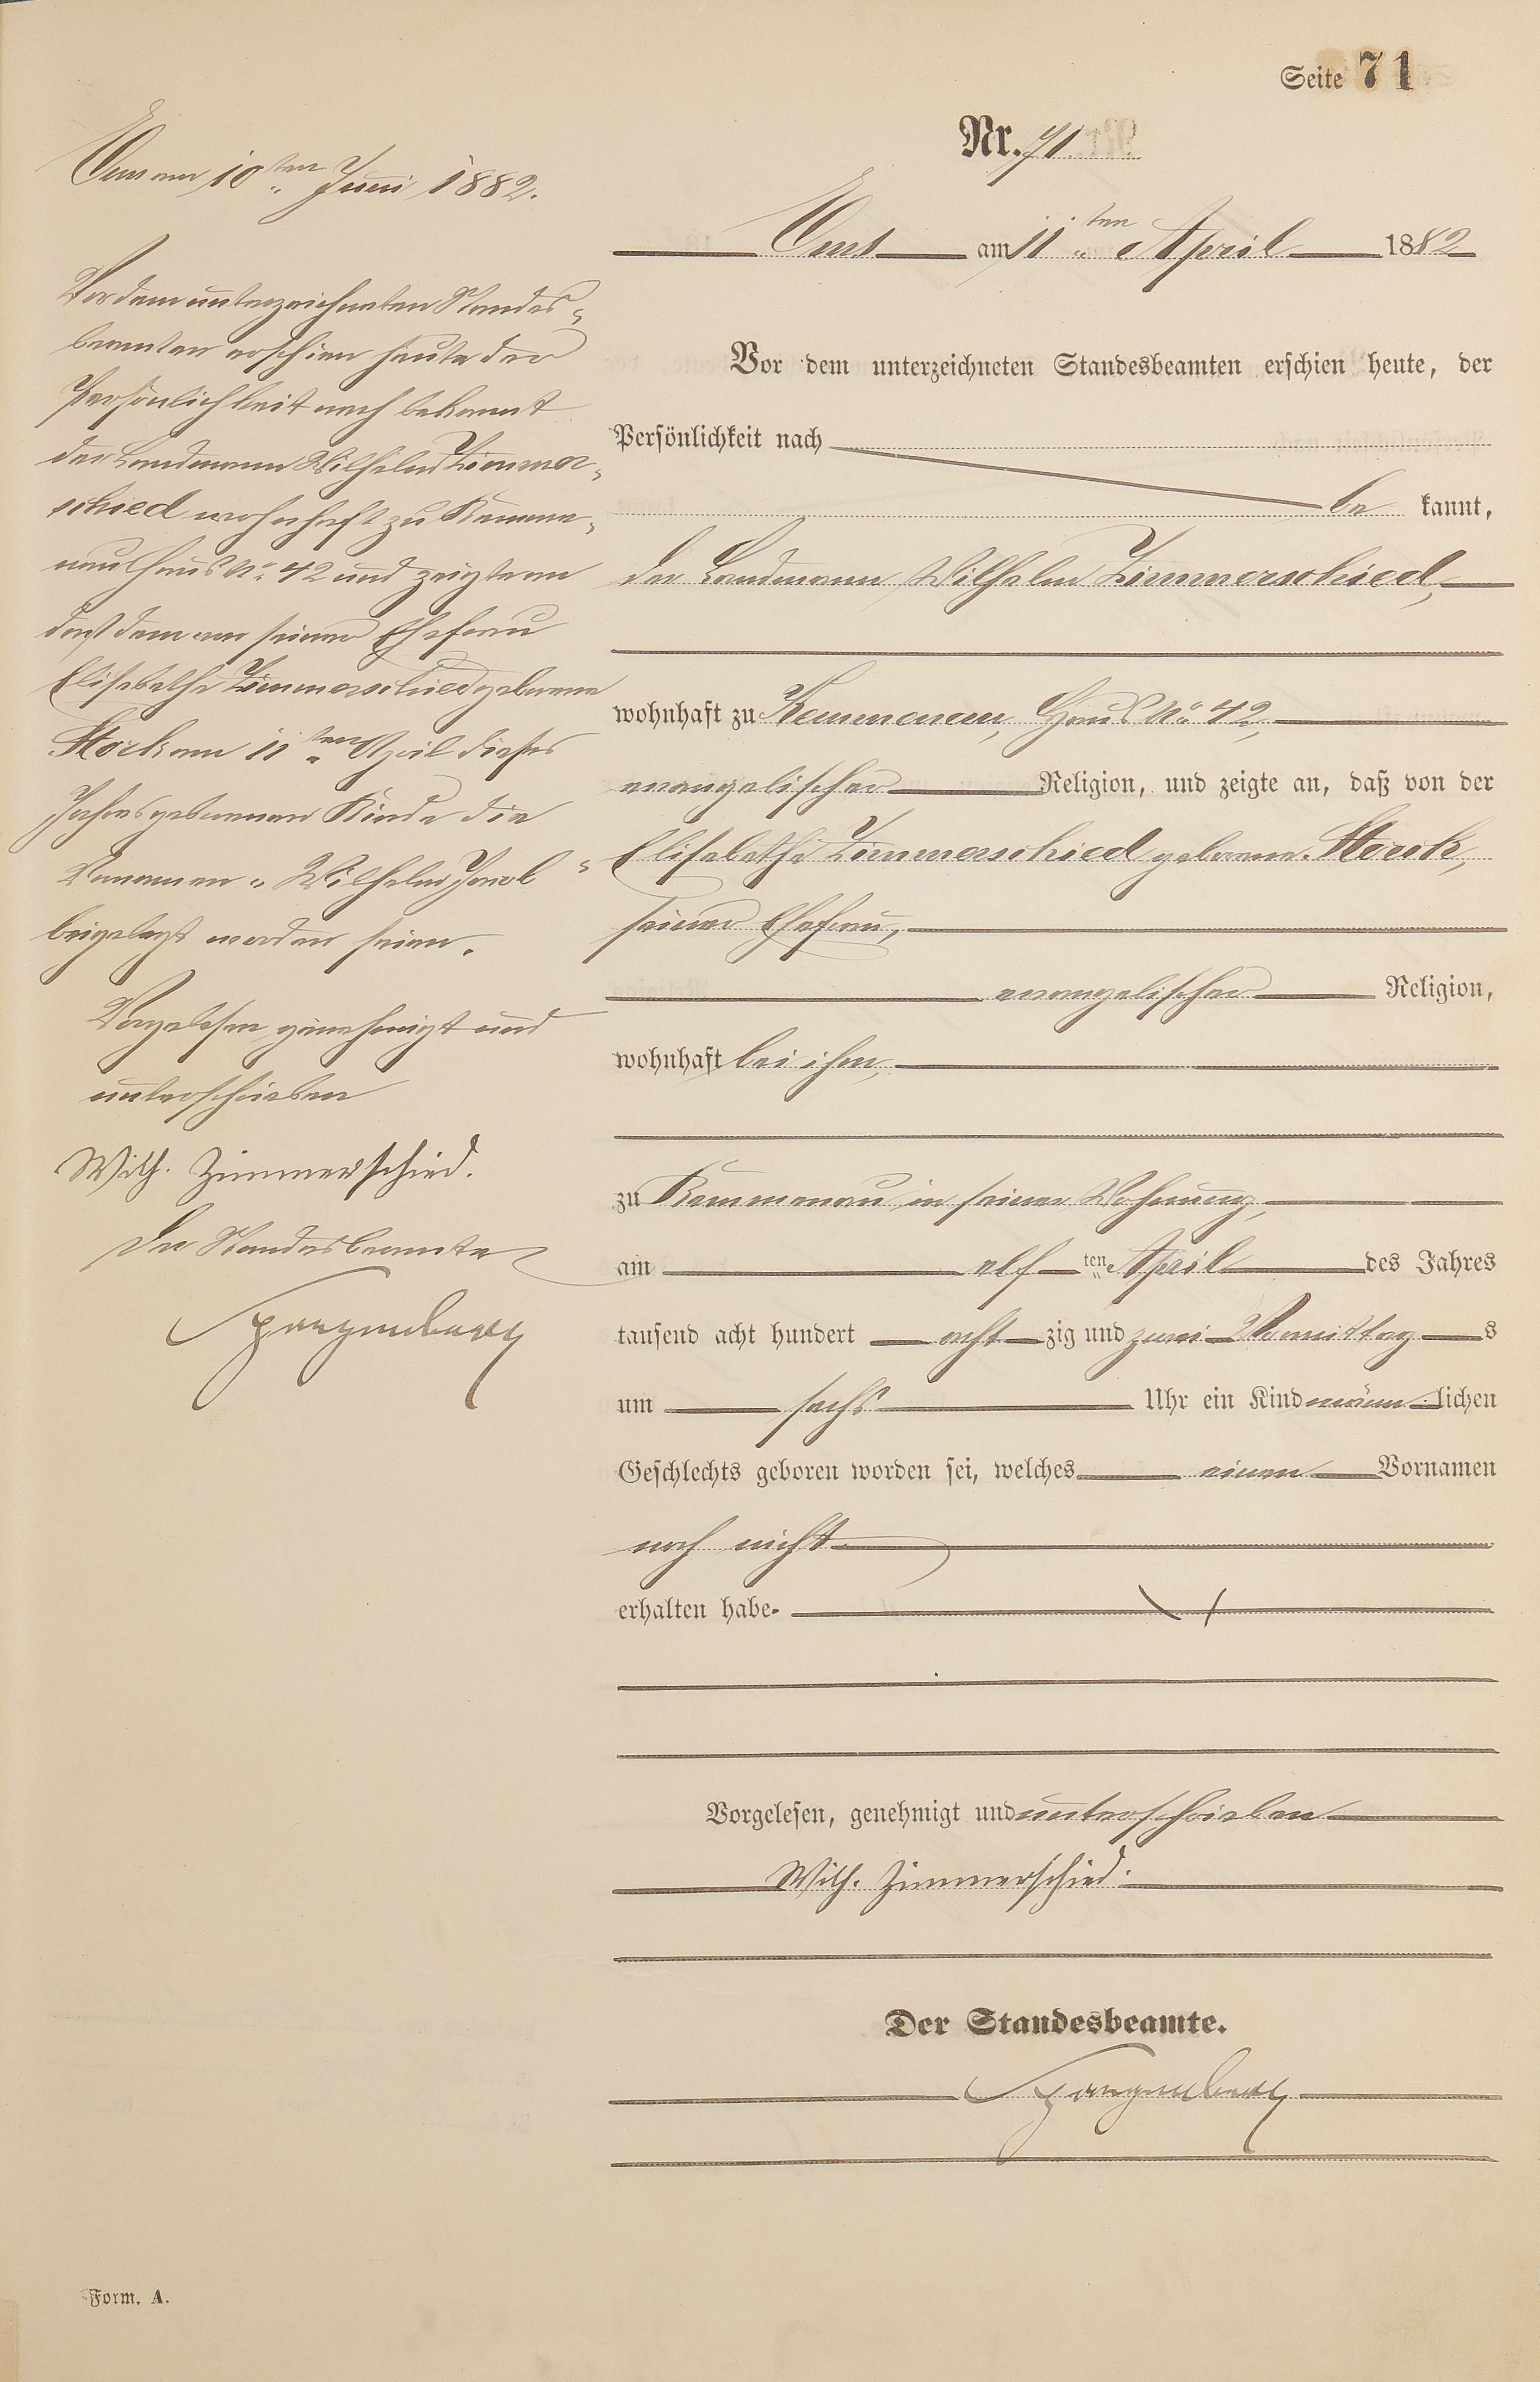 Seite 71
Nr. 71.
Ems am 11ten April 1882
Vor dem unterzeichneten Standesbeamten erschien heute, der
Persönlichkeit nach
be kannt,
der Landmann Wilhelm Zimmerschied,
wohnhaft zu Kemmenau, Haus No. 42,
evangelischer Religion, und zeigte an, daß von der
Elisabethe Zimmerschied geborene Stork,
seiner Ehefrau,
evangelischer Religion,
wohnhaft bei ihm,
zu Kemmenau in seiner Wohnung,
am elf ten April des Jahres
tausend acht hundert acht zig und zwei Vormittag s
um sechs Uhr ein Kind männ lichen
Geschlechts geboren worden sei, welches einen Vornamen
noch nicht
erhalten habe.
Vorgelesen, genehmigt und unterschrieben
Wilh. Zimmerschied.
Der Standesbeamte.
Spangenberg
Ems am 10ten Juni 1882.
Vor dem unterzeichneten Standes-
beamten erschien heute der
Persönlichkeit nach bekannt
der Landmann Wilhelm Zimmer-
schied wohnhaft zu Kemme-
nau Haus No. 42 und zeigte an
daß dem von seiner Ehefrau
Elisabethe Zimmerschied geborene
Stork am 11ten April dieses
Jahres geborenen Kinde die
Vornamen „Wilhelm Jacob"
beigelegt worden seien.
Vorgelesen genehmigt und
unterschrieben
Wilh. Zimmerschied.
Der Standesbeamte
Spangenberg
Form. A.